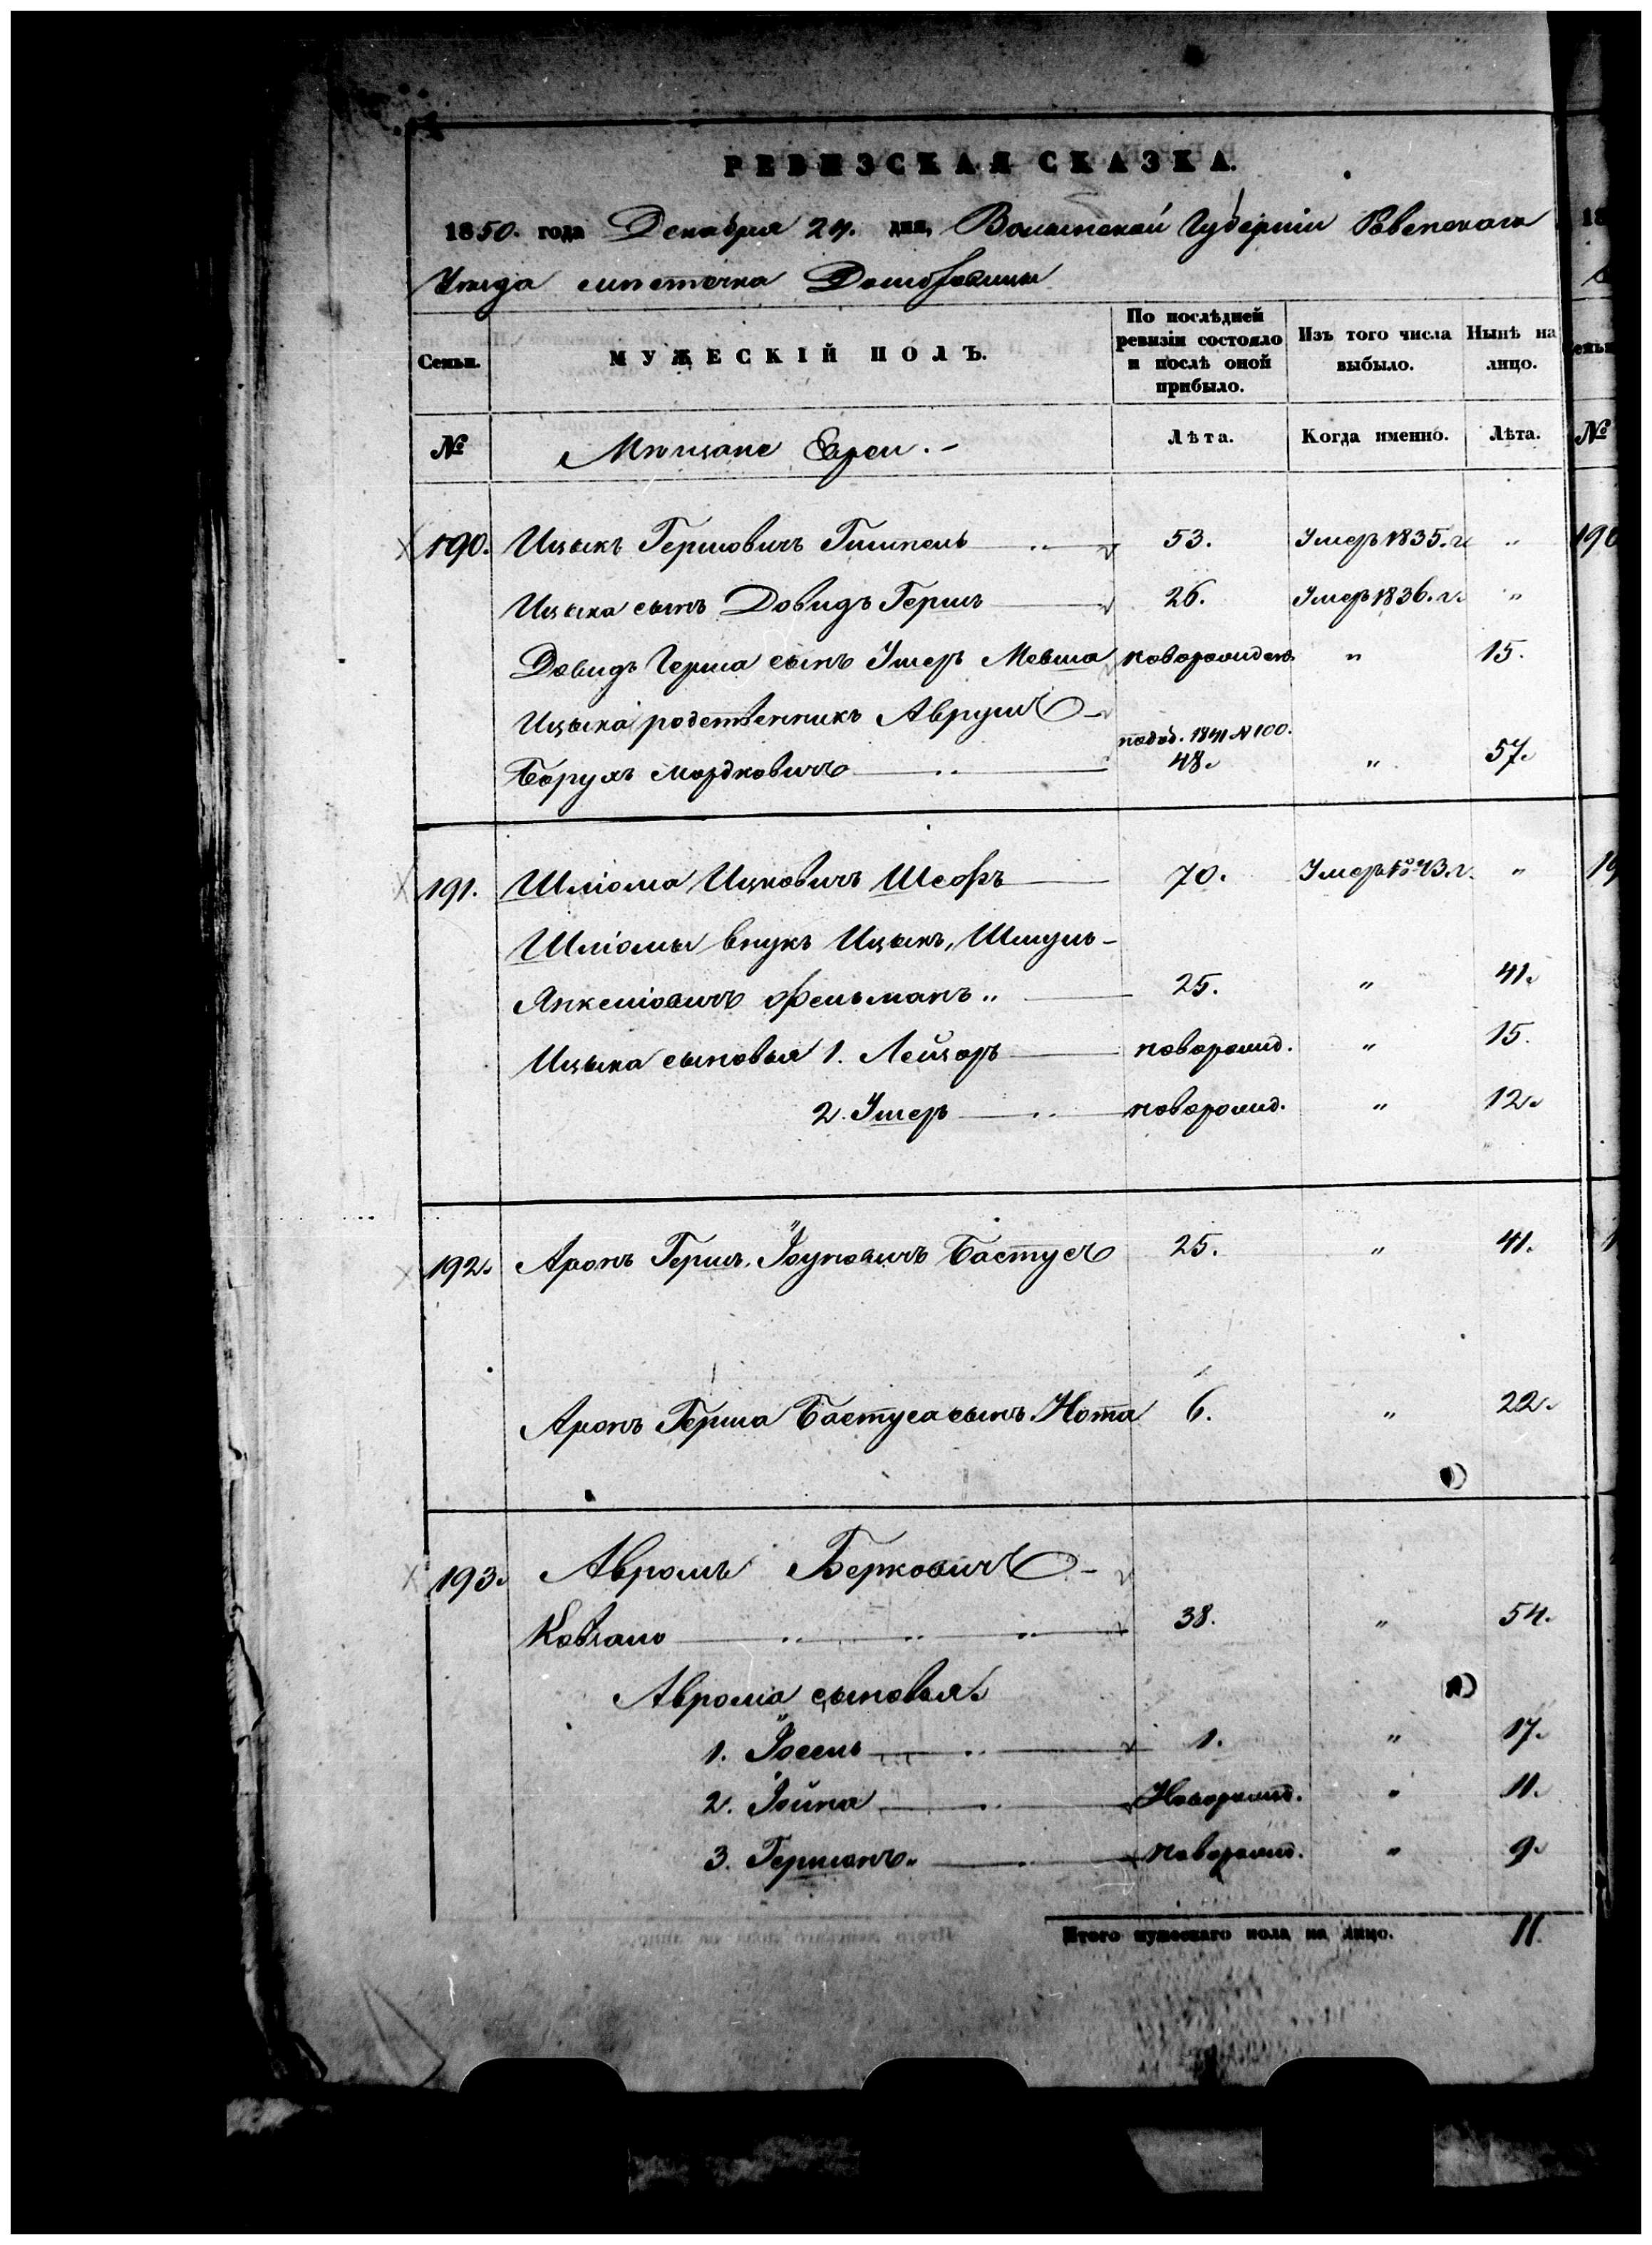 РЕВИЗСКАЯ СКАЗКА.
1850. года Декабря 24. дня, Волынской Губерніи Ровенского
Уѣзда мѣстечка Домбровицы
Семьи.
МУЖЕСКІЙ ПОЛЪ.
По послѣдней ревизіи состояло и послѣ оной прибыло.
Изъ того числа выбыло.
Нынѣ на лицо.
№ Мѣщане Евреи. Лѣта. Когда именно. Лѣта. №
190. Ицыкъ Гершовичъ 53. Умеръ 1835. г. " 190
Ицыка сынъ Довидъ Гершъ 26. Умеръ 1836. г. "
Довидъ Герша сынъ Ушеръ Мевша новорожденъ " 15.
Ицыка родственникъ Аврумъ
Борухъ Мордковичъ 1841 №100. 48. " 57.
191. Шліома Ицковичъ 70. Умеръ 1843. г. " 19
Шліомы внукъ Ицыкъ, Шмуль-
Янкеліовичъ Фельманъ " 25. " 41.
Ицыка сыновья 1. Лейзоръ новорожд. " 15.
2. Ушеръ новорожд. " 12.
192. Аронъ Гершъ Бастусъ 25. " 41.
Аронъ Герша Бастуса сынъ Нота 6. " 22.
193. Авромъ Берковичъ
38. " 54.
Аврома сыновья
1. Іосель 1. " 17.
2. Іойна Новорожд. " 11.
3. Гершонъ новорожд. " 9.
Итого мужескаго пола на лицо. 11.